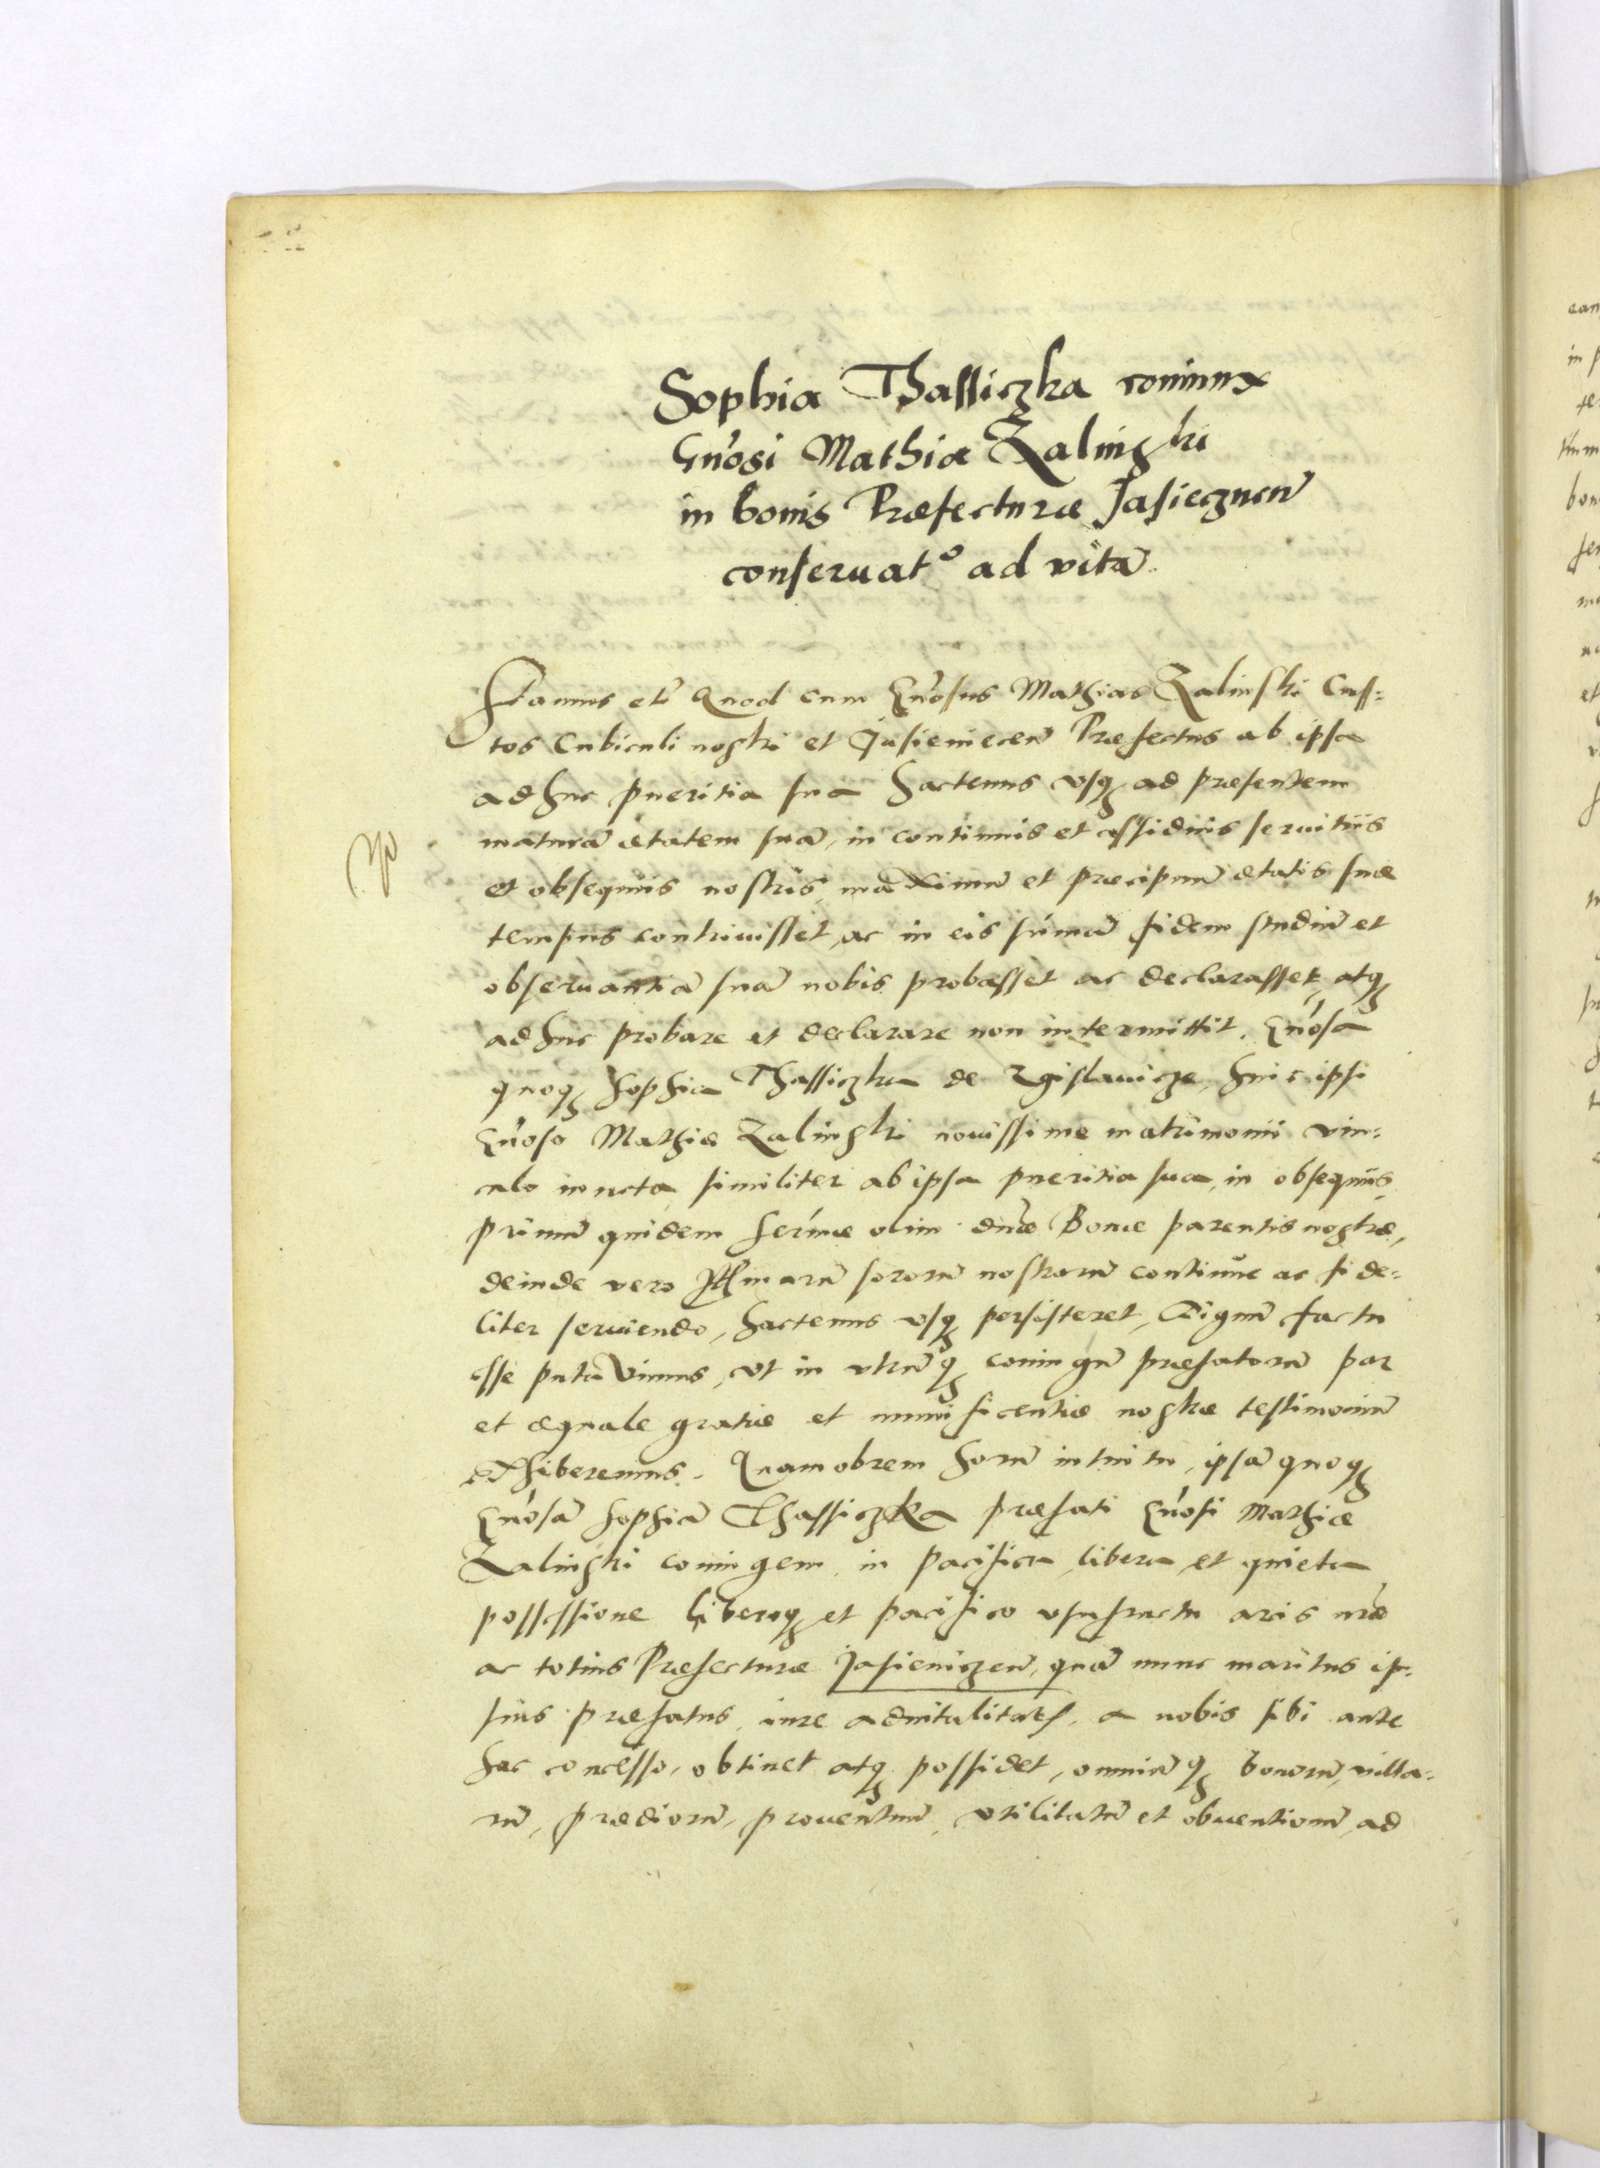 Sophia Thassiczka coniunx
Gn̄osi Mathiæ Zalinski
in bonis Præfecturæ Jasiecznen̄
conseruat͏ᵒ ad vitā
Significamus etc̄ Quod cum Gn̄osus Mathias Zalinski Cus=
tos Cubiculi nostri et Jasieniecen̄ Præfectus ab ipsa
adhuc pueritia sua hactenus vsq̨ ad præsentem
maturā ætatem suā, in continuis et assiduis seruitiis
et obsequiis nostris, maximū et præcipuū ætatis suæ
tempus contriuisset, ac in eis sum̄ā fidem studiū et
obseruantiā suā nobis probasset ac declarasset, atq̨
adhuc probare et declarare non intermittit. Gn̄osa
quoq̨ Sophia Thassiczka de Zgislauicze, huic ipsi
Gn̄oso Mathiæ Zalinski nouissime matrimonii vin=
culo iuncta, similiter ab ipsa pueritia sua, in obsequiis,
primū quidem Ser̄mæ olim dn̄æ Bonæ parentis nostræ,
deinde vero Ill̄marū sororū nostrarū continue ac fide=
liter seruiendo, hactenus vsq̨ persisteret, Dignū factu
esse putauimus, vt in vtrūq̨ coniugū præfatorū par
et æquale gratiæ et munificentiæ nostræ testimoniū
exhiberemus. Quamobrem horū intuitu, ipsā quoq̨
Gn̄osā Sophiā Thassiczka præfati Gn̄osi Mathiæ
Zalinski coniugem, in pacifica, libera et quieta
possessione liberoq̨ et pacifico vsufructu arcis nr̄æ
ac totius Præfecturæ Jasieniczen̄, quā nunc maritus ip=
sius præfatus, iure aduitalitatis, a nobis sibi ante
hac concesso, obtinet atq̨ possidet, omniūq̨ bonorū, villa=
rū, prædiorū, prouentuū, vtilitatū et obuentionū, ad